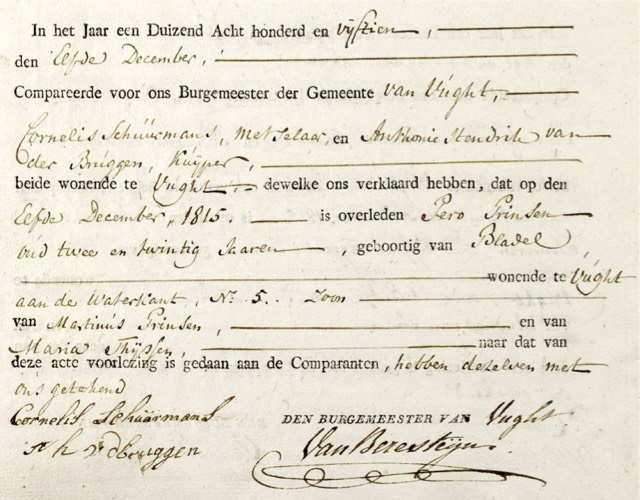 In het Jaar een Duizend Acht honderd en vijftien,
den Elfde December,
Compareerde voor ons Burgemeester der Gemeente van Vught,
Cornelis Schuurmans, Metselaar, en Anthonie Hendrik van
der Bruggen, Kuyper,
beide wonende te Vught dewelke ons verklaard hebben, dat op den
Elfde December, 1815. is overleden Pero Prinsen
oud twee en twintig Jaaren, geboortig van Bladel
wonende te Vught
aan de Waterkant, No. 5. Zoon
van Martinus Prinsen, en van
Maria Thijssen, naar dat van
deze acte voorlezing is gedaan aan de Comparanten, hebben dezelven met
ons getekend
Cornelis Schuurmans DEN BURGEMEESTER VAN Vught
A h v d bruggen Van Beresteijn